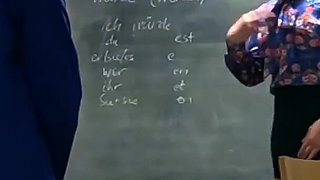 ich würde
du est
er/sie/es e
wir en
ihr et
Sie/sie en